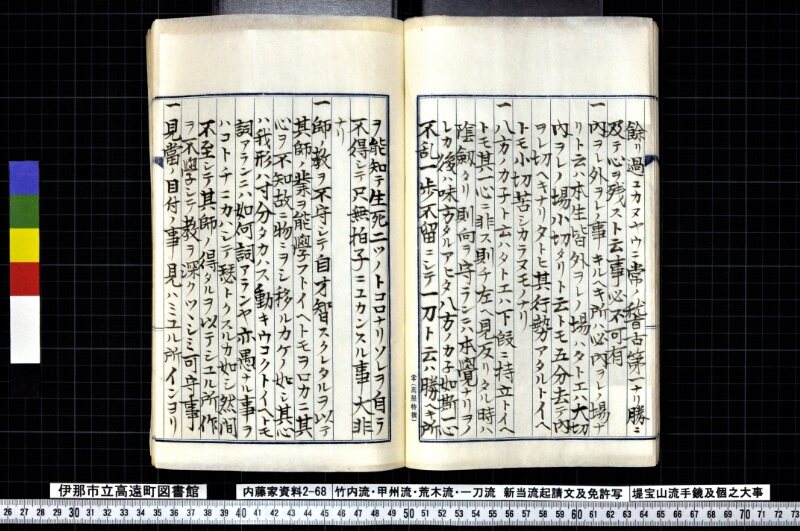 餘リ過ユカヌヤウニ常ノ稽古第一ナリ勝ニ
及テ心ヲ残スト云事必不可有
一内ヲレ外ヲレノ事キルヘキ所ハ必内ヲレノ場ナ
リト云ハ本生皆外ヲレノ場ハタトエハ大切
内ヲレノ場小切タリト云トモ五分去テ内
ヲレ切ヘキナリタトヒ其行勢アタルトイヘ
トモ小切苦シカラヌモノナリ
一八方ノカ子ト云ハタトエハ下段ニ持立トイヘ
トモ其心ニ非ス則チ左ヘ見反リタル時ハ
陰劔ナリ則向ヲ守ランニハ本覺ナリヲノ
レカ後ノ味方タルアヒタ八方ノカ子如斯一心
不乱一歩不留ニシテ一刀ト云ハ勝ヘキ所
ヲ能知テ生死二ツノトコロナリソレヲ自テ
不得シテ只無拍子ニユカンスル事大非
ナリ
一師ノ教ヲ不守シテ自才智スクレタルヲ以テ
其師ノ業ヲ能學フトイヘトモヲロカニ其
心ヲ不知故ニ物ミヲシ移ルカケノ如シ其心
ハ我形ハ寸分タカハス動キウコクトイヘトモ
詞アランニハ如何詞アランヤ亦愚キル事ヲ
ハコトチニカハシテ瑟トクスルカ如シ然間
不至シテ其師ノ得タルヲ以テシユル所作
ヲ不學シテ教ヲ深クツヽシミ可守事
一見當ノ目付ノ事見ハミユル所インヨリ
伊那市立高遠町図書館
内藤家資料2-68
竹内流・甲州流・荒木流・一刀流 新当流起請文及免許写
堤宝山流手鏡及個之大事
26 27 28 29 30 31 32 33 34 35 36 37 38 39 40 41 42 43 44 45 46 47 48 49 50 51 52 53 54 55 56 57 58 59 60 61 62 63 64 65 66 67 68 69 70 71 72 73